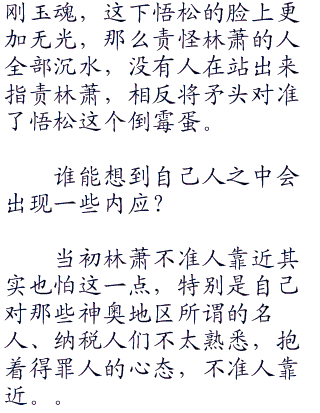 刚玉魂，这下悟松的脸上更
加无光，那么责怪林萧的人
全部沉水，没有人在站出来
指责林萧，相反将矛头对准
了悟松这个倒霉蛋。
谁能想到自己人之中会
出现一些内应？
当初林萧不准人靠近其
实也怕这一点，特别是自己
对那些神奥地区所谓的名
人、纳税人们不太熟悉，抱
着得罪人的心态，不准人靠
近。。